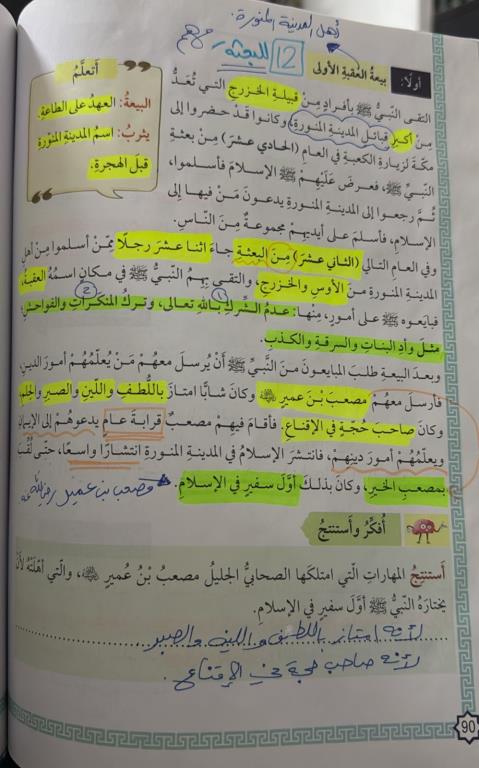 أهل المدينة المنورة.
12 للبعثة مهم
أولًا: بيعةُ العقبةِ الأولى
أتعلَّمُ
البيعةُ: العهدُ على الطاعةِ.
يثربُ: اسمُ المدينةِ المنوّرةِ
قبلَ الهجرةِ.
التقى النّبيُّ ﷺ بأفرادٍ مِنْ قبيلةِ الخزرجِ التي تُعَدُّ
مِنْ أكبرِ قبائلِ المدينةِ المنورةِ، وكانوا قدْ حضروا إلى
مكّةَ لزيارةِ الكعبةِ في العامِ (الحادي عشرَ) مِنْ بعثةِ
النّبيِّ ﷺ، فعرضَ عَلَيهِمْ ﷺ الإسلامَ فأسلموا،
ثُمَّ رجعوا إلى المدينةِ المنورةِ يدعونَ مَنْ فيها إلى
الإسلامِ، فأسلمَ على أيديهِمْ مجموعةٌ مِنَ النّاسِ.
وفي العامِ التالي (الثاني عشرَ) مِنَ البعثةِ جاءَ اثنا عشرَ رجلًا ممّنْ أسلموا مِنْ أهلِ
المدينةِ المنورةِ مِنَ الأوسِ والخزرجِ، والتقى بِهِمُ النّبيُّ ﷺ في مكانٍ اسمُهُ العقبةُ،
فبايَعوه ﷺ على أمورٍ، مِنْها: عدمُ الشِّركِ باللهِ تعالى، وتركُ المنكَراتِ والفواحشِ
مثلِ وأدِ البناتِ والسرقةِ والكذبِ.
وبعدَ البيعةِ طلبَ المبايعونَ مِنَ النّبيِّ ﷺ أنْ يُرسلَ معهُمْ مَنْ يُعلّمُهُمْ أمورَ الدينِ،
فأرسلَ معهُمْ مصعبَ بْنَ عميرٍ وكانَ شابًّا امتازَ باللُّطفِ واللّينِ والصبرِ والحِلمِ،
وكانَ صاحبَ حُجّةٍ في الإقناعِ. فأقامَ فيهِمْ مصعبٌ قرابةَ عامٍ يدعوهُمْ إلى الإيمانِ
ويعلّمُهُمْ أمورَ دينِهِمْ، فانتشرَ الإسلامُ في المدينةِ المنورةِ انتشارًا واسعًا، حتى لُقّبَ
بمصعبِ الخيرِ، وكانَ بذلكَ أوّلَ سفيرٍ في الإسلامِ. مصعب بن عمير
أُفكِّرُ وأستنتجُ
أستنتجُ المهاراتِ الّتي امتلكَها الصحابيُّ الجليلُ مصعبُ بْنُ عُميرٍ، والّتي أهّلَتْهُ لأنْ
يختارَهُ النّبيُّ ﷺ أوّلَ سفيرٍ في الإسلامِ.
لأنه امتاز باللطف واللين والصبر
لأنه صاحب حجة في الإقناع.
90